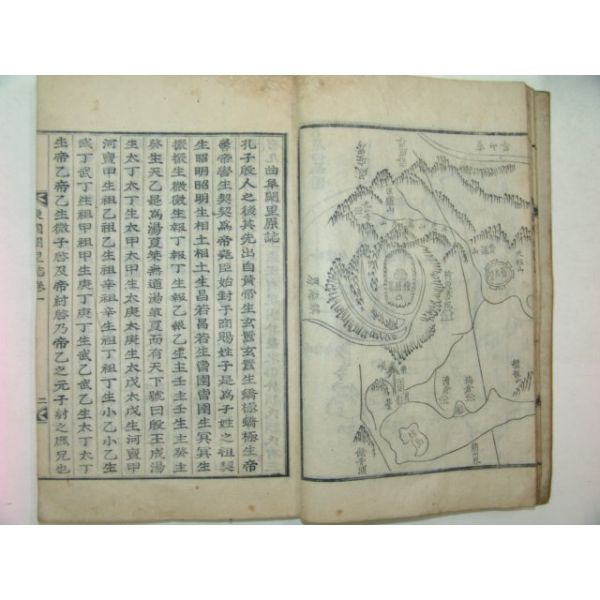 曲阜闕里原誌
孔子殷人之後其先出自黃帝生玄囂玄囂生蟜極蟜極生帝
嚳帝嚳生契契爲帝堯臣始封于商賜姓子是爲子姓之祖契
生昭明昭明生相土相土生昌若昌若生曹圉曹圉生冥冥生
振振生微微生報丁報丁生報乙報乙生主壬主壬生主癸主
癸生天乙是爲湯夏桀無道湯革夏而有天下號曰殷王成湯
生太丁太丁生太甲太甲生太庚太庚生太戊太戊生河亶甲
河亶甲生祖乙祖乙生祖辛祖辛生祖丁祖丁生小乙小乙生
武丁武丁生祖甲祖甲生庚丁庚丁生武乙武乙生太丁太丁
生帝乙帝乙生微子啓及帝紂啓乃帝乙之元子紂之庶兄也
東國闕里誌卷一
二